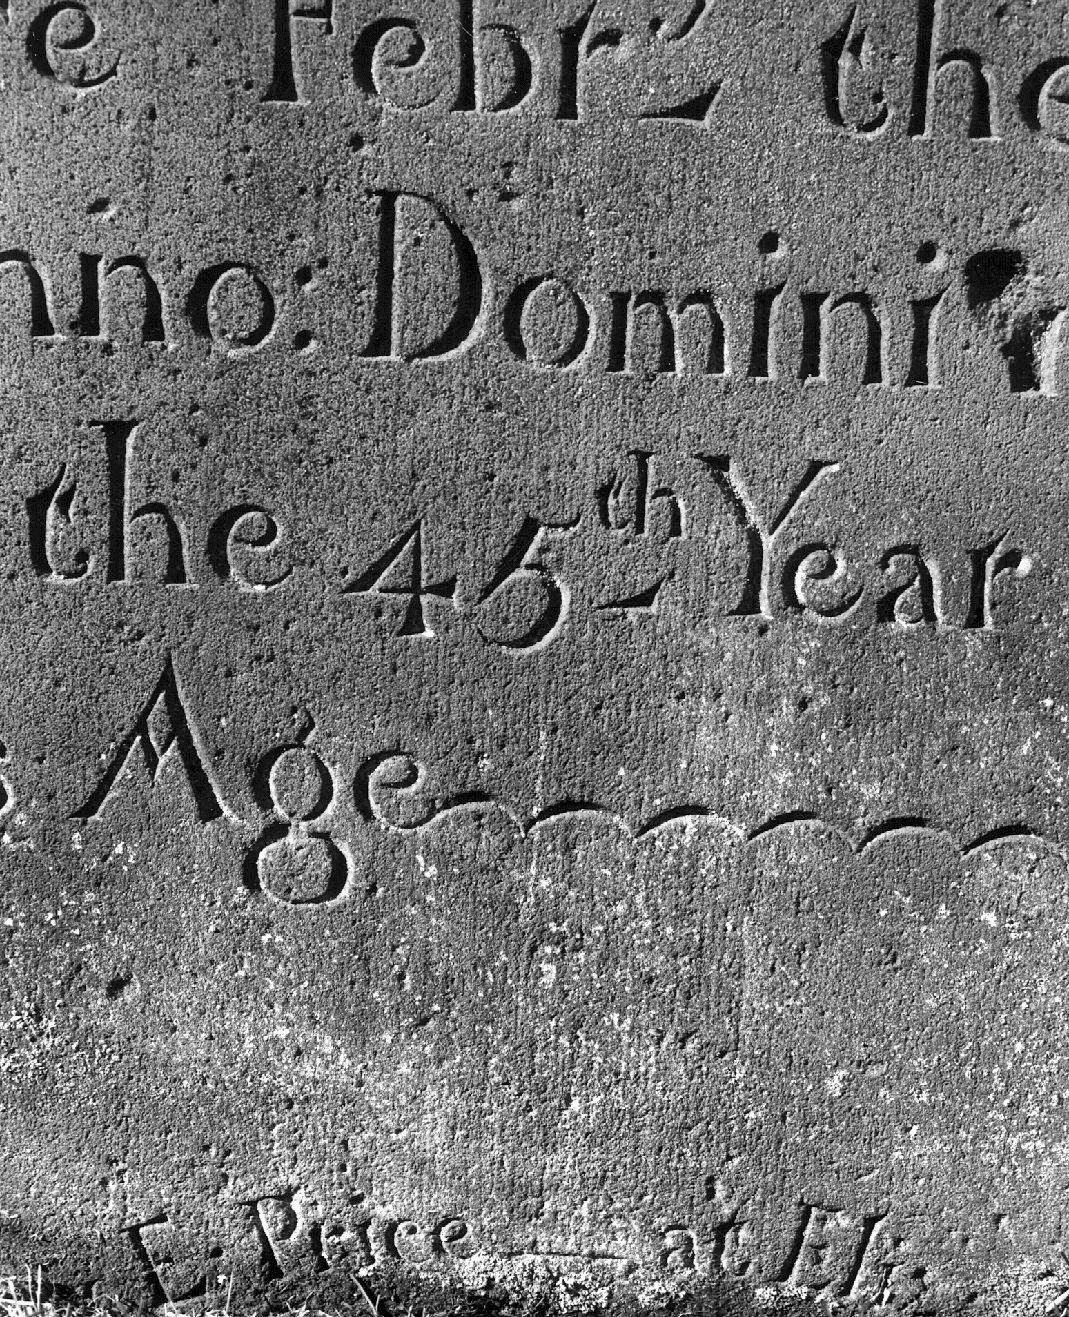 e Febr 2 the
nno: Domini
the 45th Year
s Age
E. Price at El